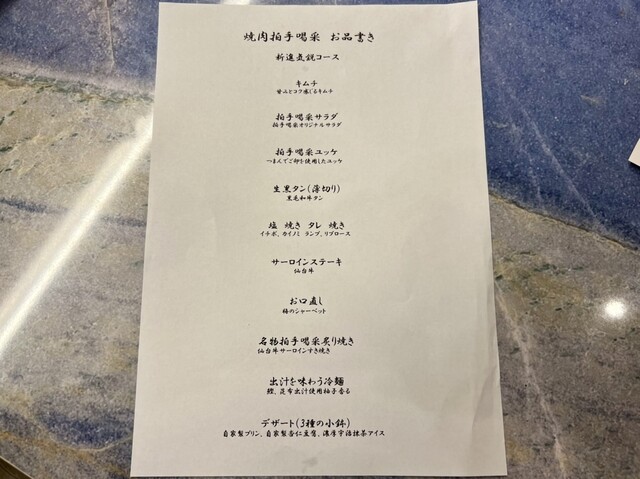 焼肉拍手喝采 お品書き
新進気鋭コース
キムチ
甘みとコク感じるキムチ
拍手喝采サラダ
拍手喝采オリジナルサラダ
拍手喝采ユッケ
つまんでご卵を使用したユッケ
生黒タン(薄切り)
黒毛和牛タン
塩 焼き タレ 焼き
イチボ、カイノミ ランプ、リブロース
サーロインステーキ
仙台牛
お口直し
梅のシャーベット
名物拍手喝采炙り焼き
仙台牛サーロインすき焼き
出汁を味わう冷麺
鰹、昆布出汁使用柚子香る
デザート(3種の小鉢)
自家製プリン、自家製杏仁豆腐、濃厚宇治抹茶アイス